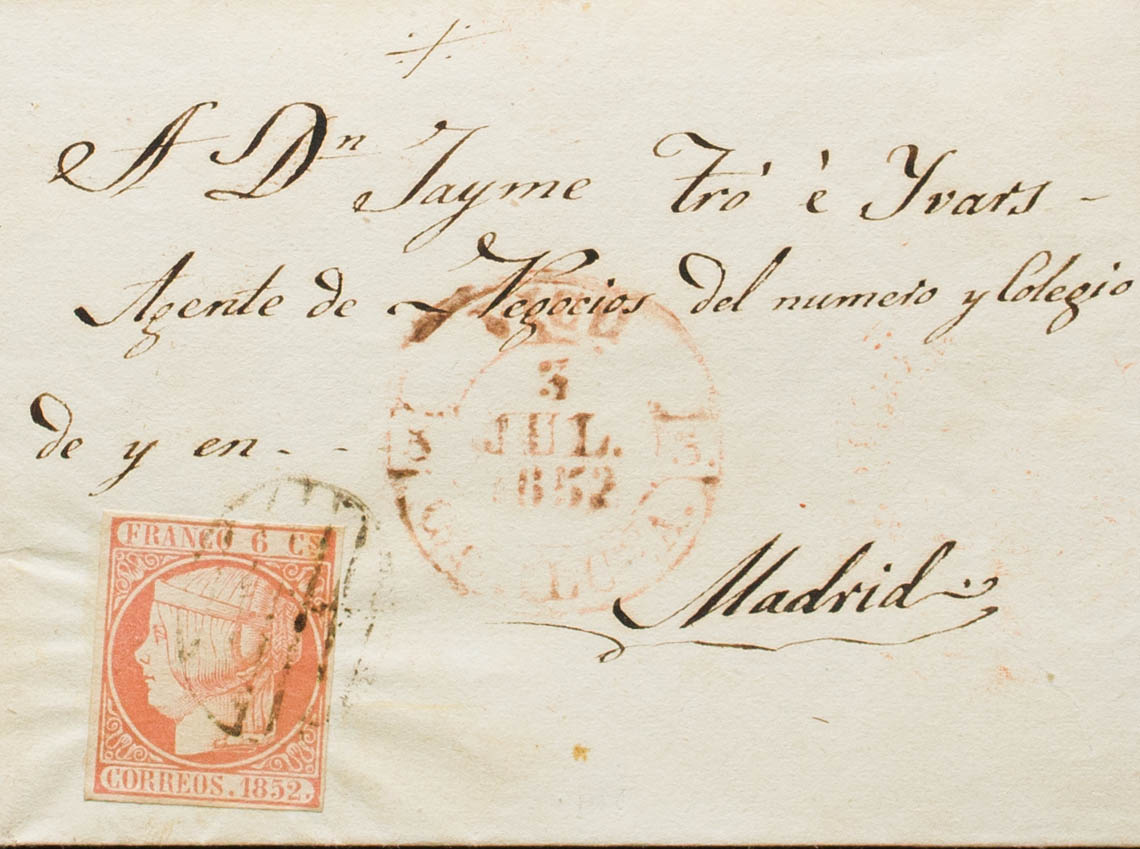 A Dn Jayme Tró è Yvars -
Agente de Negocios del numero y Colegio
de y en - -
3
JUL.
1852
3 3.
Madrid
FRANCO 6 Cs
CORREOS. 1852.